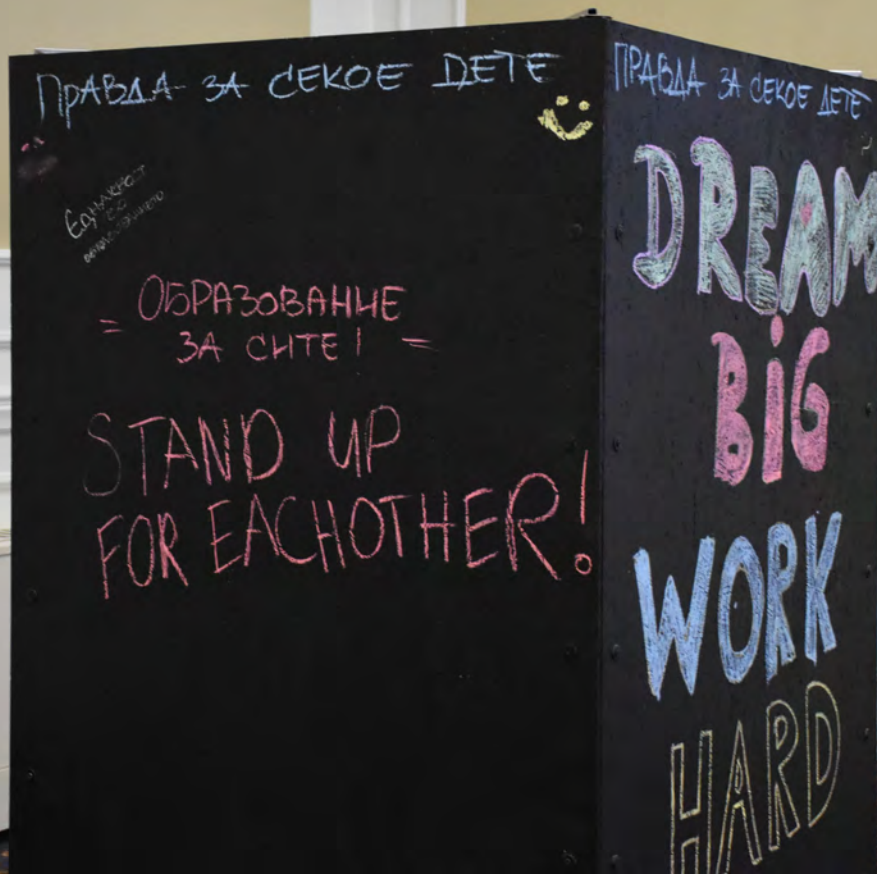 ПРАВДА ЗА СЕКОЕ ДЕТЕ
ОБРАЗОВАНИЕ
ЗА СИТЕ!
STAND UP
FOR EACHOTHER!
ПРАВДА ЗА СЕКОЕ ДЕТЕ
DREAM
BiG
WORK
HARD